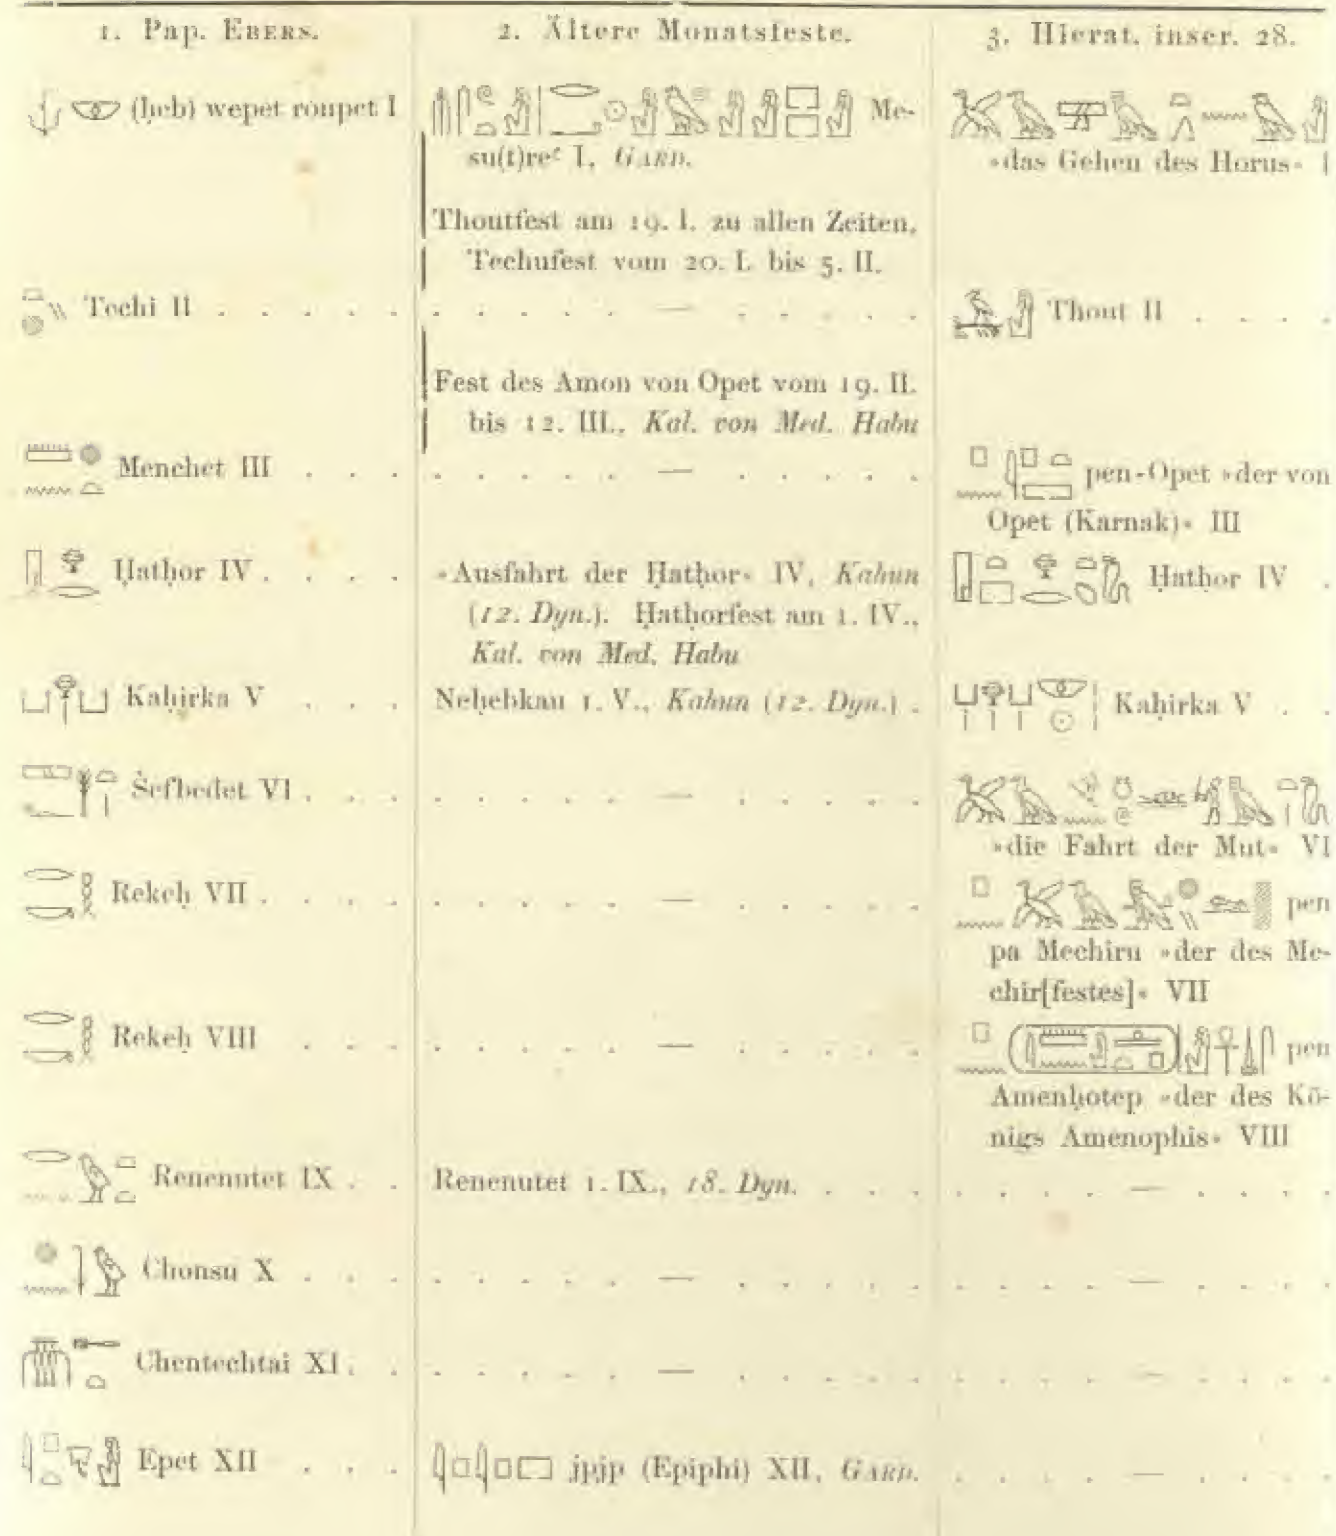 1. Pap. EBERS.
2. Ältere Monatsfeste.
3. Hierat. inscr. 28.
(ḥeb) wepet roupet I
Me-
su(t)reꜥ I, GARD.
»das Gehen des Horus« I
Thoutfest am 19. I. zu allen Zeiten,
Techufest vom 20. I. bis 5. II.
Techi II . . . . .
. . . . . — . . . . .
Thout II . . . .
Fest des Amon von Opet vom 19. II.
bis 12. III., Kal. von Med. Habu
Menchet III . . .
. . . . . — . . . . .
pen-Opet »der von
Opet (Karnak)« III
Ḥatḥor IV . . . .
»Ausfahrt der Ḥatḥor« IV, Kahun
(12. Dyn.). Ḥatḥorfest am 1. IV.,
Kal. von Med. Habu
Ḥatḥor IV .
Kaḥirka V . . .
Neḥebkau 1. V., Kahun (12. Dyn.) .
Kaḥirka V . .
Šefbedet VI . . .
. . . . . — . . . . .
»die Fahrt der Mut« VI
Rekeḥ VII . . . .
. . . . . — . . . . .
pen
pa Mechiru »der des Me-
chir[festes]« VII
Rekeḥ VIII . . .
. . . . . — . . . . .
pen
Amenḥotep »der des Kö-
nigs Amenophis« VIII
Renenutet IX . .
Renenutet 1. IX., 18. Dyn. . . . .
. . . . — . . . .
Chonsu X . . .
. . . . . — . . . . .
. . . . — . . . .
Chentechtai XI . .
. . . . . — . . . . .
. . . . — . . . .
Epet XII . . .
jpjp (Epiphi) XII, GARD.
. . . . — . . . .